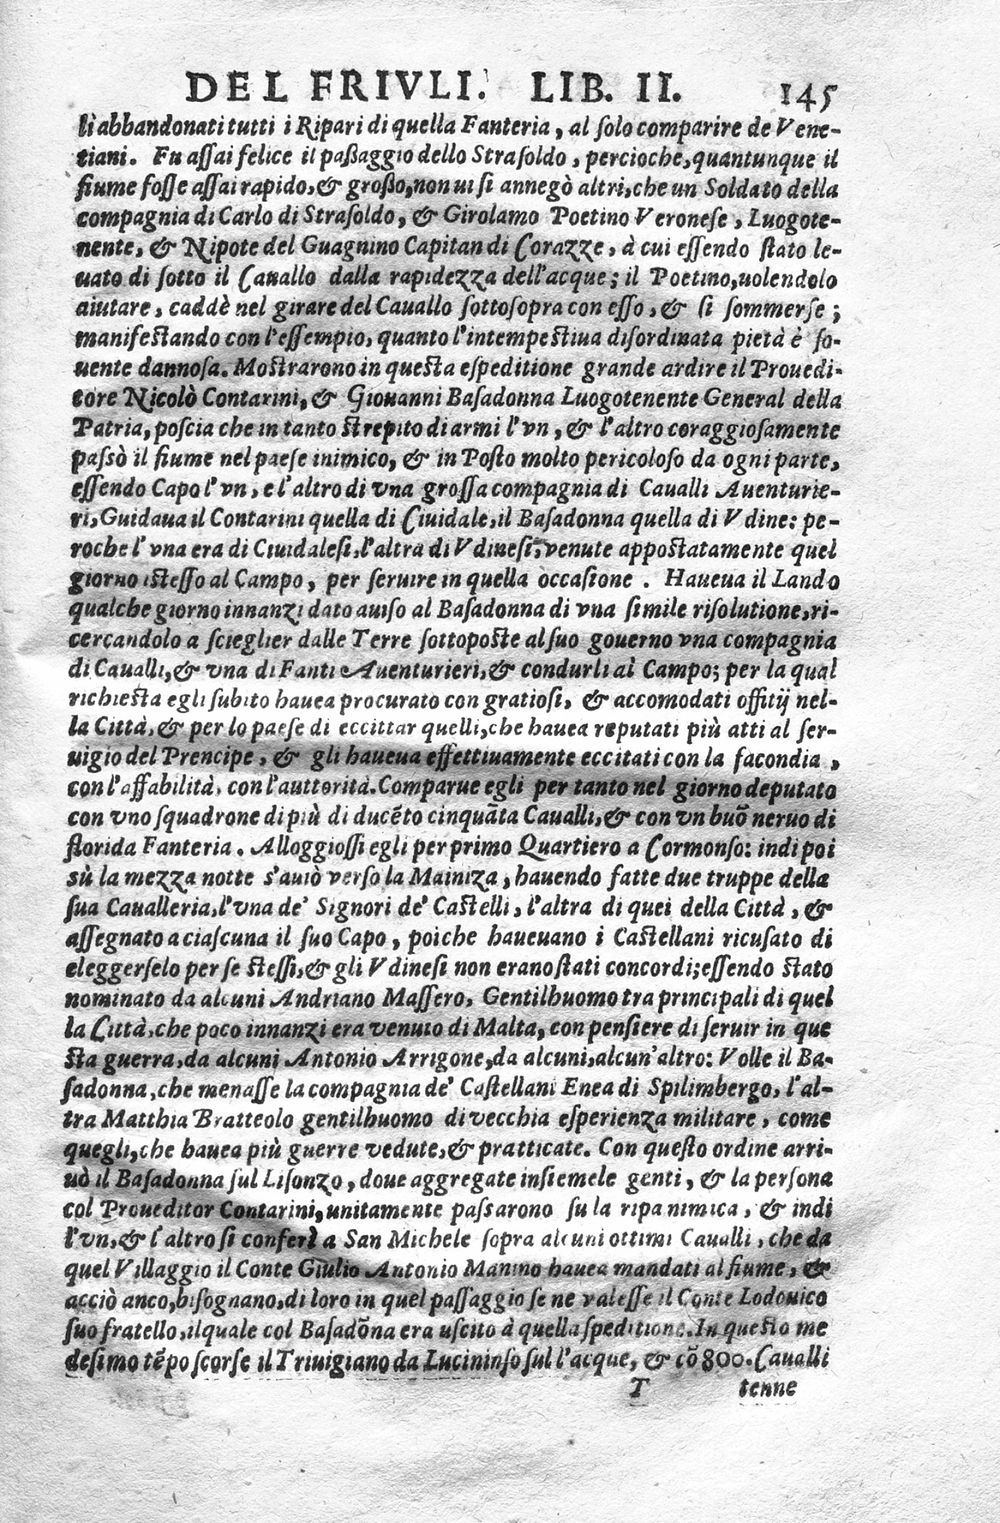 DEL FRIVLI. LIB. II. 145
lì abbandonati tutti i Ripari di quella Fanteria, al ſolo comparire de Vene-
tiani. Fu aſſai felice il paßaggio dello Straſoldo, percioche, quantunque il
fiume foſſe aſſai rapido, & großo, non ui ſi annegò altri, che un Soldato della
compagnia di Carlo di Straſoldo, & Girolamo Poetino Veroneſe, Luogote-
nente, & Nipote del Guagnino Capitan di Corazze, à cui eſſendo ſtato le-
uato di ſotto il Cauallo dalla rapidezza dell'acque; il Poetino, uolendolo
aiutare, caddè nel girare del Cauallo ſottoſopra con eſſo, & ſi ſommerſe;
manifeſtando con l'eſſempio, quanto l'intempeſtiua diſordinata pietà è ſo-
uente dannoſa. Moſtrarono in queſta eſpeditione grande ardire il Prouedi-
tore Nicolò Contarini, & Giouanni Baſadonna Luogotenente General della
Patria, poſcia che in tanto ſtrepito di armi l'vn, & l'altro coraggioſamente
paſsò il fiume nel paeſe inimico, & in Poſto molto pericoloſo da ogni parte,
eſſendo Capo l'vn, e l'altro di vna groſſa compagnia di Caualli Auenturie-
ri, Guidaua il Contarini quella di Ciuidale, il Baſadonna quella di Vdine: pe-
roche l'vna era di Ciuidaleſi, l'altra di Vdineſi, venute appoſtatamente quel
giorno iſteſſo al Campo, per ſeruire in quella occaſione. Haueua il Lando
qualche giorno innanzi dato auiſo al Baſadonna di vna ſimile riſolutione, ri-
cercandolo a ſcieglier dalle Terre ſottopoſte al ſuo gouerno vna compagnia
di Caualli, & vna di Fanti Auenturieri, & condurli al Campo; per la qual
richieſta egli ſubito hauea procurato con gratioſi, & accomodati offitij nel-
la Città, & per lo paeſe di eccittar quelli, che hauea reputati più atti al ſer-
uigio del Prencipe, & gli haueua effettiuamente eccitati con la facondia,
con l'affabilità, con l'auttorità. Comparue egli per tanto nel giorno deputato
con vno ſquadrone di più di ducẽto cinquãta Caualli, & con vn buõ neruo di
florida Fanteria. Alloggioſſi egli per primo Quartiero a Cormonſo: indi poi
sù la mezza notte s'auiò verſo la Mainiza, hauendo fatte due truppe della
ſua Caualleria, l'vna de' Signori de' Caſtelli, l'altra di quei della Città, &
aſſegnato a ciaſcuna il ſuo Capo, poiche haueuano i Caſtellani ricuſato di
eleggerſelo per ſe ſteſſi, & gli Vdineſi non erano ſtati concordi; eſſendo ſtato
nominato da alcuni Andriano Maſſero, Gentilhuomo tra principali di quel
la Città, che poco innanzi era venuto di Malta, con penſiere di ſeruir in que
ſta guerra, da alcuni Antonio Arrigone, da alcuni, alcun'altro: Volle il Ba-
ſadonna, che menaſſe la compagnia de' Caſtellani Enea di Spilimbergo, l'al-
tra Matthia Bratteolo gentilhuomo di vecchia eſperienza militare, come
quegli, che hauea più guerre vedute, & pratticate. Con queſto ordine arri-
uò il Baſadonna ſul Liſonzo, doue aggregate inſieme le genti, & la perſona
col Proueditor Contarini, unitamente paſſarono ſu la ripa nimica, & indi
l'vn, & l'altro ſi conferì a San Michele ſopra alcuni ottimi Caualli, che da
quel Villaggio il Conte Giulio Antonio Manino hauea mandati al fiume, &
acciò anco, biſognano, di loro in quel paſſaggio ſe ne valeſſe il Conte Lodouico
ſuo fratello, il quale col Baſadõna era uſcito à quella ſpeditione. In queſto me
deſimo tẽpo ſcorſe il Triuigiano da Lucininſo ſul l'acque, & cõ 800. Caualli
T tenne